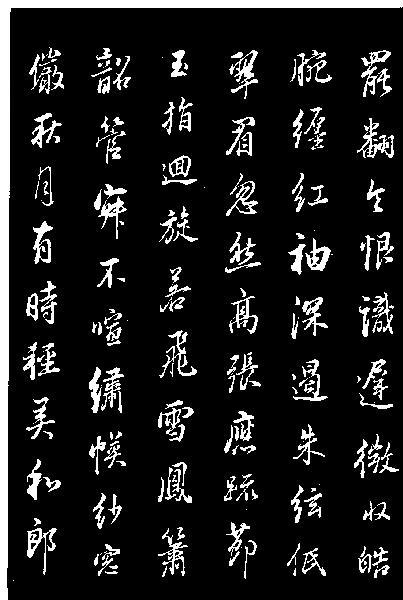 罷翻令恨識遲微收皓
腕纏紅袖深遏朱絃低
翠眉忽然高張應疏節
玉指迴旋若飛雪鳳簫
韶管寂不喧繡幙紗窗
儼秋月有時輕弄和郎